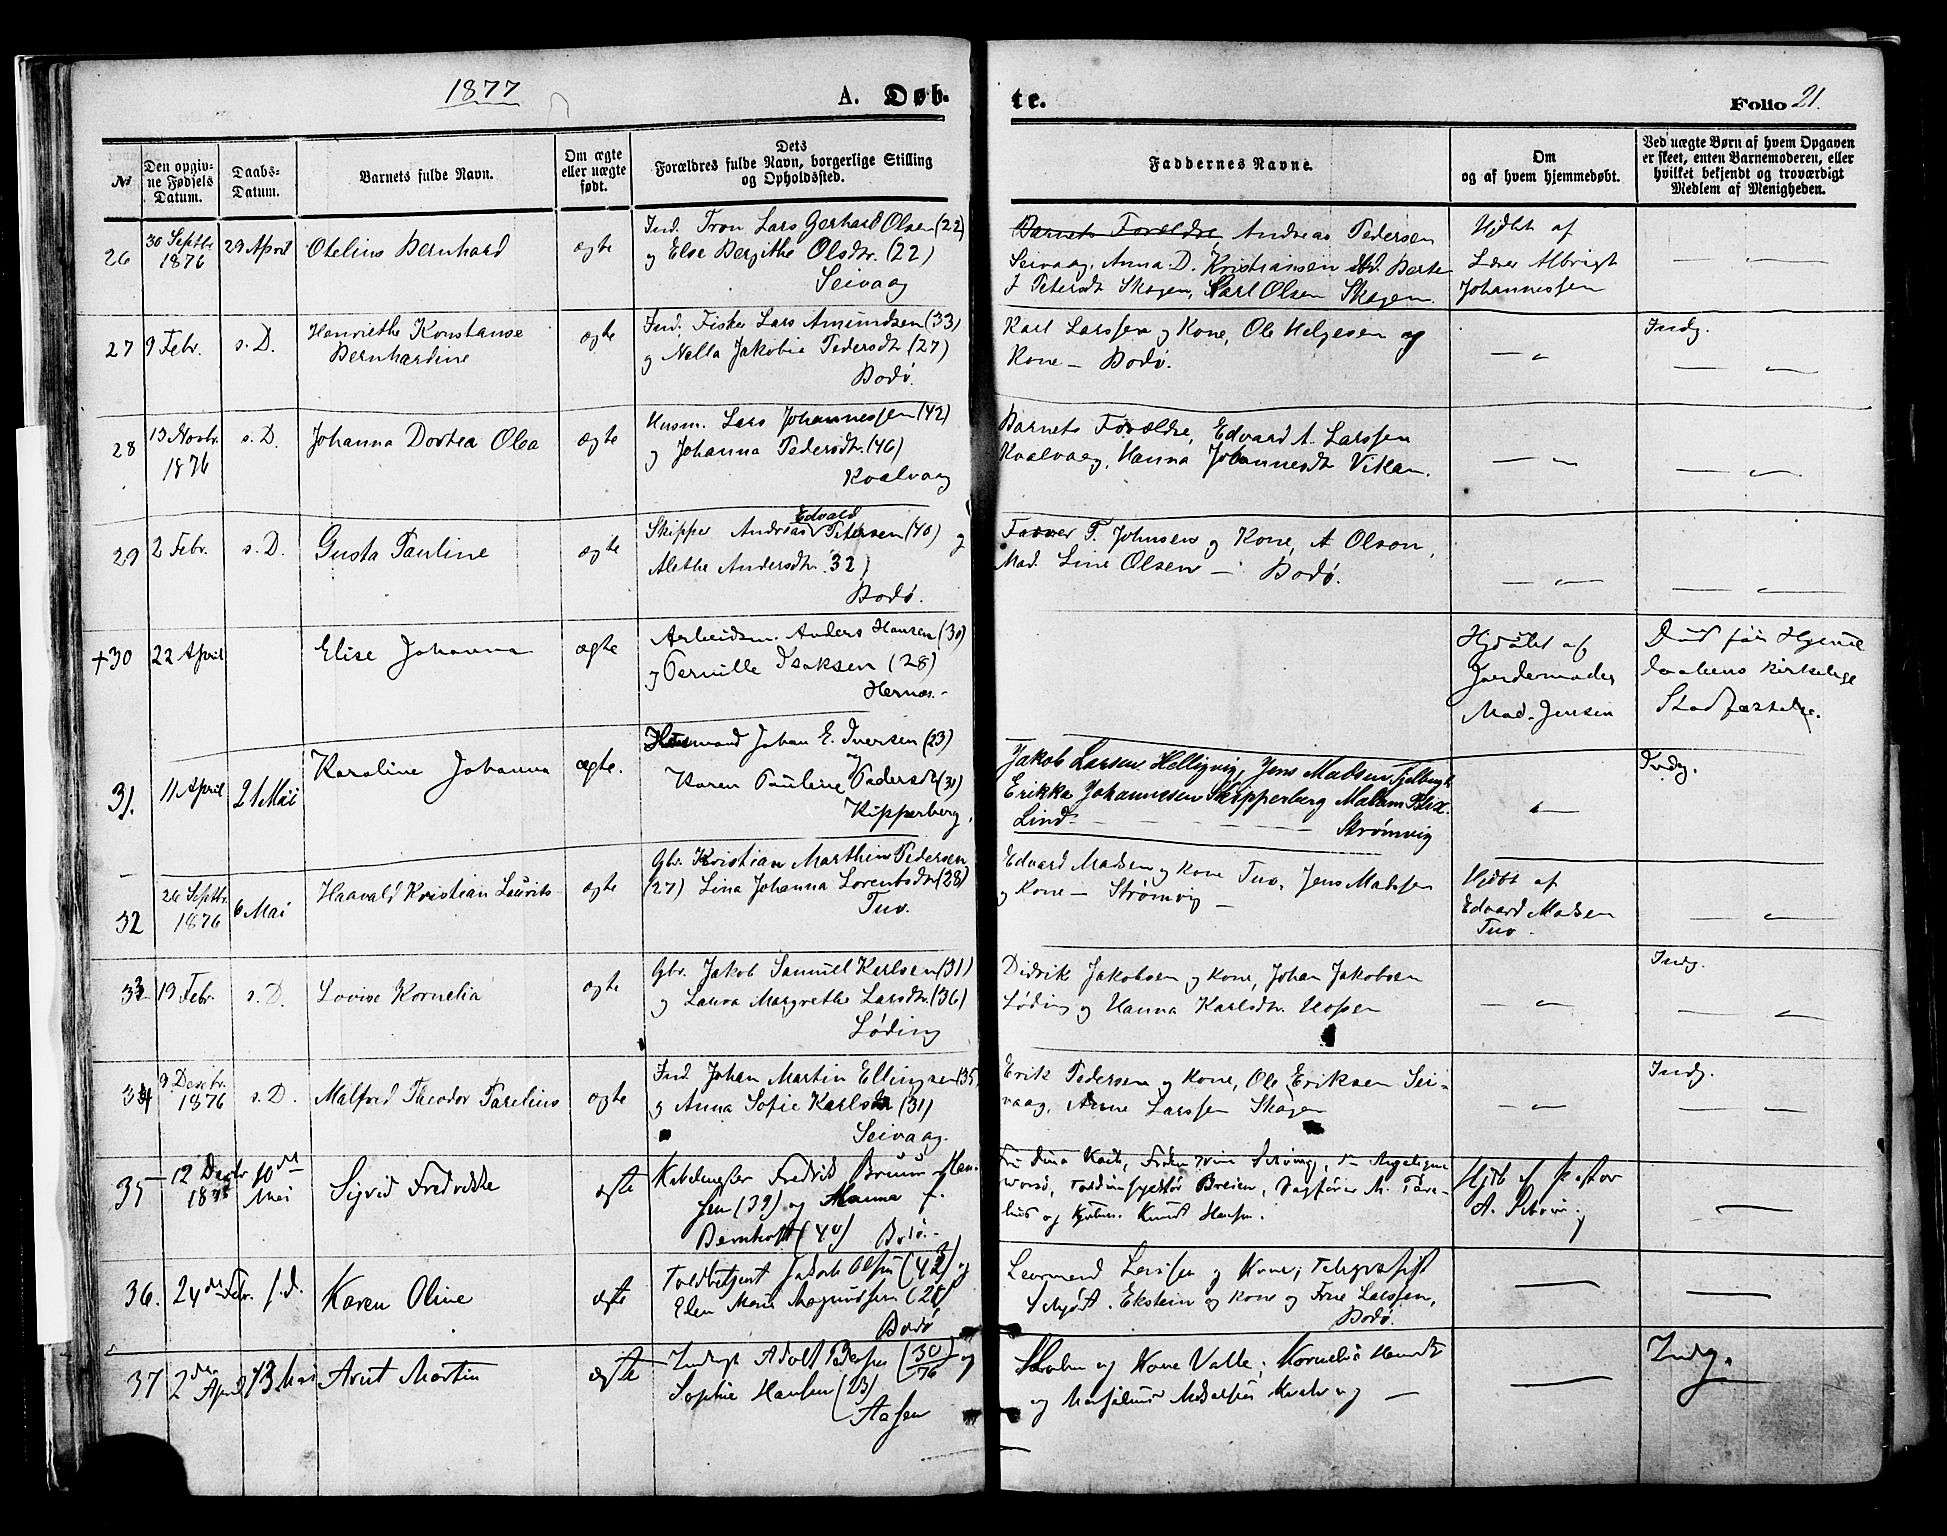 1877
A. Døb-
te.
Folio 21.
No
Den opgiv-
ne Fødsels
Datum.
Daabs-
Datum.
Barnets fulde Navn.
Om ægte
eller uægte
født.
Dets
Forældres fulde Navn, borgerlige Stilling
og Opholdssted.
Faddernes Navne.
Om
og af hvem hjemmedøbt.
Ved uægte Børn af hvem Opgaven
er skeet, enten Barnemoderen, eller
hvilket bekjendt og troværdigt
Medlem af Menigheden.
26
30 Septbr
1876
29 April
Otelius Bernhard
ægte
Ind. Tron Lars Gerhard Olsen (22)
og Else Bergithe Olsdtr. (22)
Seivaag
Barnets Forældre, Andreas Pedersen
Seivaag, Anna D. Kristiansen ibd. Berte
J Petersdtr Skagen, Karl Olsen Skagen.
Hjdbt af
Lærer Albrigt
Johannessen
— " —
27
9 Febr.
s. D.
Henriethe Konstanse
Bernhardine
ægte
Ind. Fisker Lars Amundsen (33)
og Nella Jakobia Pedersdtr (27)
Bodø.
Karl Larssen og Kone, Ole Helgesen og
Kone — Bodø.
— " —
Indg.
— " —
28
13 Novbr.
1876
s. D.
Johanna Dortea Olea
ægte
Husm. Lars Johannessen (42)
og Johanna Pedersdtr. (46)
Kvalvaag
Barnets Forældre, Edvard A. Larssen
Kvalvaag, Hanna Johannesdtr Vikan.
— " —
— " —
29
2 Febr.
s. D.
Gusta Pauline
ægte
Edvald
Skipper Andreas Petersen (40) og
Alethe Andersdtr. 32)
Bodø.
Farver P. Johnsen og Kone, A Olson,
Mad. Line Olsen — Bodø.
— " —
— " —
+30
22 April
Elise Johanna
ægte
Arbeidsm. Anders Hansen (30)
og Pernille Isaksen (28)
Hernæs.-
Hjdøbt af
Jordemoder
Mad. Jensen
Død før Hjemme
daabens kirkelige
Stadfæstelse.
31.
11 April
21 Mai
Karoline Johanna
ægte.
Husmand Johan E. Iversen (23)
og
Karen Pauline Pedersdt (30)
Kipperberg.
Jakob Larsen Helligvig, Jens Madsen
Erikka Johannesen Skipperberg Madam
Lind — Strømvig
"
Indg.
32
26 Septbr.
1876
6 Mai
Haavald Kristian Laurits
ægte
Gbr. Kristian Marthin Pedersen
(27) Lina Johanna Lorentsdtr (28)
Tuv.
Edvard Madsen og Kone Tuv, Jens Madsen
og Kone — Strømvig —
Hjdbt af
Edvard Madsen
Tuv.
— " —
33
19 Febr.
s. D.
Lovise Kornelia
ægte
Gbr. Jakob Samuel Karlsen (31)
og Laura Margrethe Larsdtr. (36)
Løding
Didrik Jakobsen og Kone, Johan Jakobsen
Løding og Hanna Karlsdtr. Hopen
— " —
Indg.
— " —
34
9 Decbr.
1876
s. D.
Malfred Theodor Parelius
ægte
Ind. Johan Martin Ellingsen (35
og Anna Sofie Karlsdtr (31)
Seivaag.
Erik Pedersen og Kone, Ole Eriksen Sei-
vaag, Arne Larssen Skagen
— " —
Indg.
— " —
35
12 Decbr
10de
Mai
Sigvid Fredrikke
ægte
Fredrik Bruun Han-
sen (39) og Hanna f.
Bernhoft (40) Bodø.-
Breien, Sagfører
og Knud Hansen.
Hjdb af Pastor
A.
36.
24de Febr.
s. d.
Karen Oline
ægte
Toldbetjent Jakob Olsen (42) og
Elen Marie Magnussen (28)
Bodø
Leonard Larssen og Kone, Telegrafist
Schjøt. Ekstein og Kone og Frue Larssen,
Bodø.
37
2den
April
13 Mai
Arnt Martin
ægte
Indvgt Adolf Pedersen (30/76) og
Sophie Hansen (23)
Aasen
og Kone Valle, Kornelia
og
Indg.